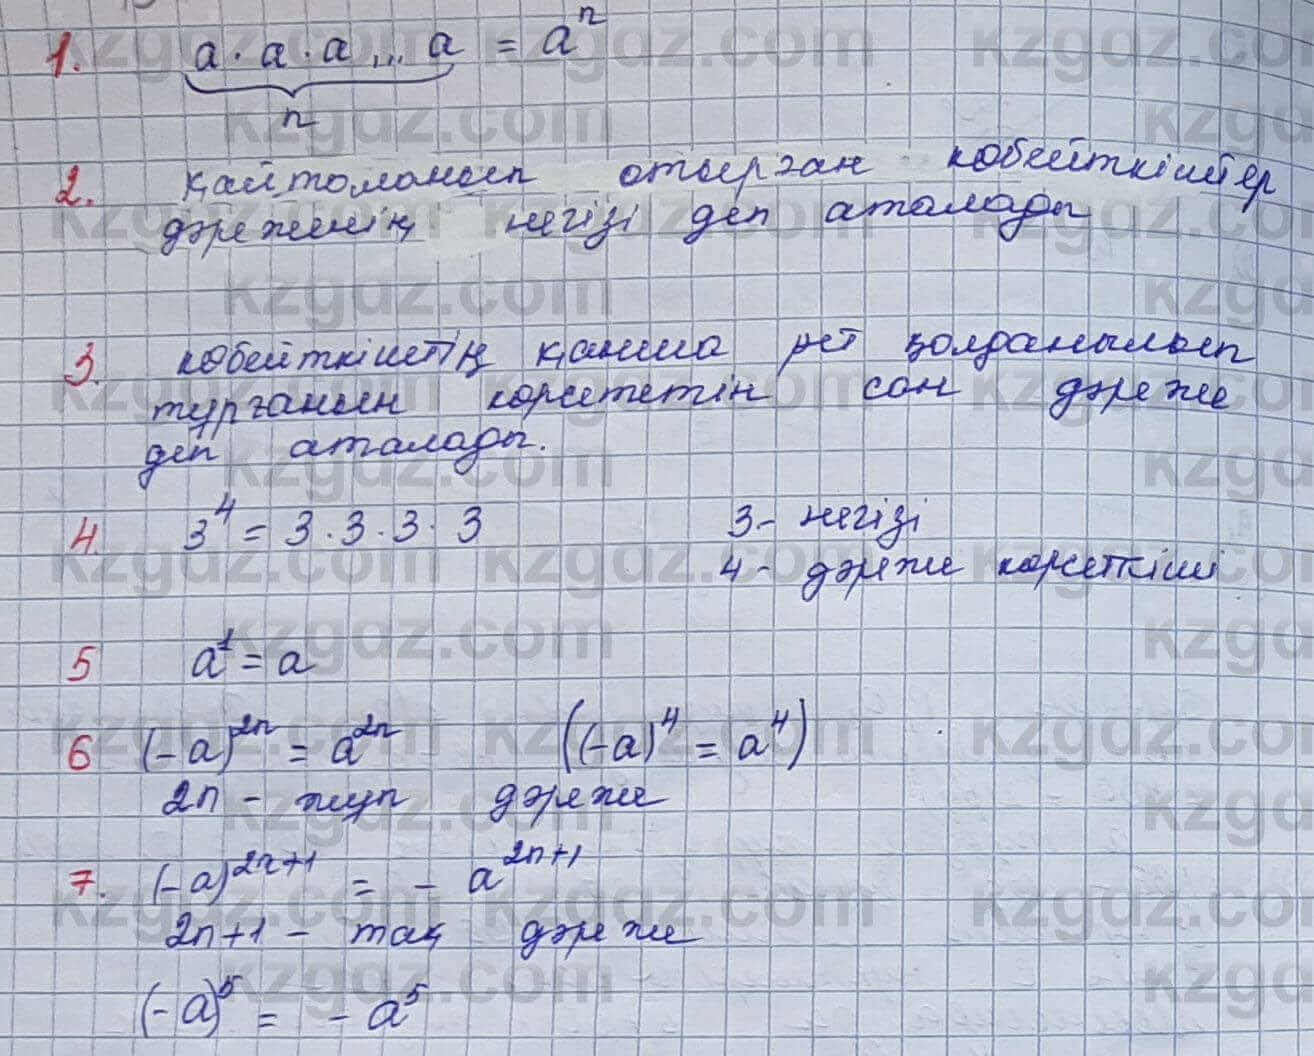 1. a · a · a ... a = aⁿ
n
2. қайталанып отырған көбейткіштер
дәреженің негізі деп аталады
3. көбейткіштің қанша рет қолданылып
тұрғанын көрсететін сан дәреже
деп аталады.
4. 3⁴ = 3 · 3 · 3 · 3 3 - негізі
4 - дәреже көрсеткіші
5 a¹ = a
6 (-a)²ⁿ = a²ⁿ ((-a)⁴ = a⁴)
2n - жұп дәреже
7. (-a)²ⁿ⁺¹ = - a²ⁿ⁺¹
2n+1 - тақ дәреже
(-a)⁵ = - a⁵
kzgdz.com